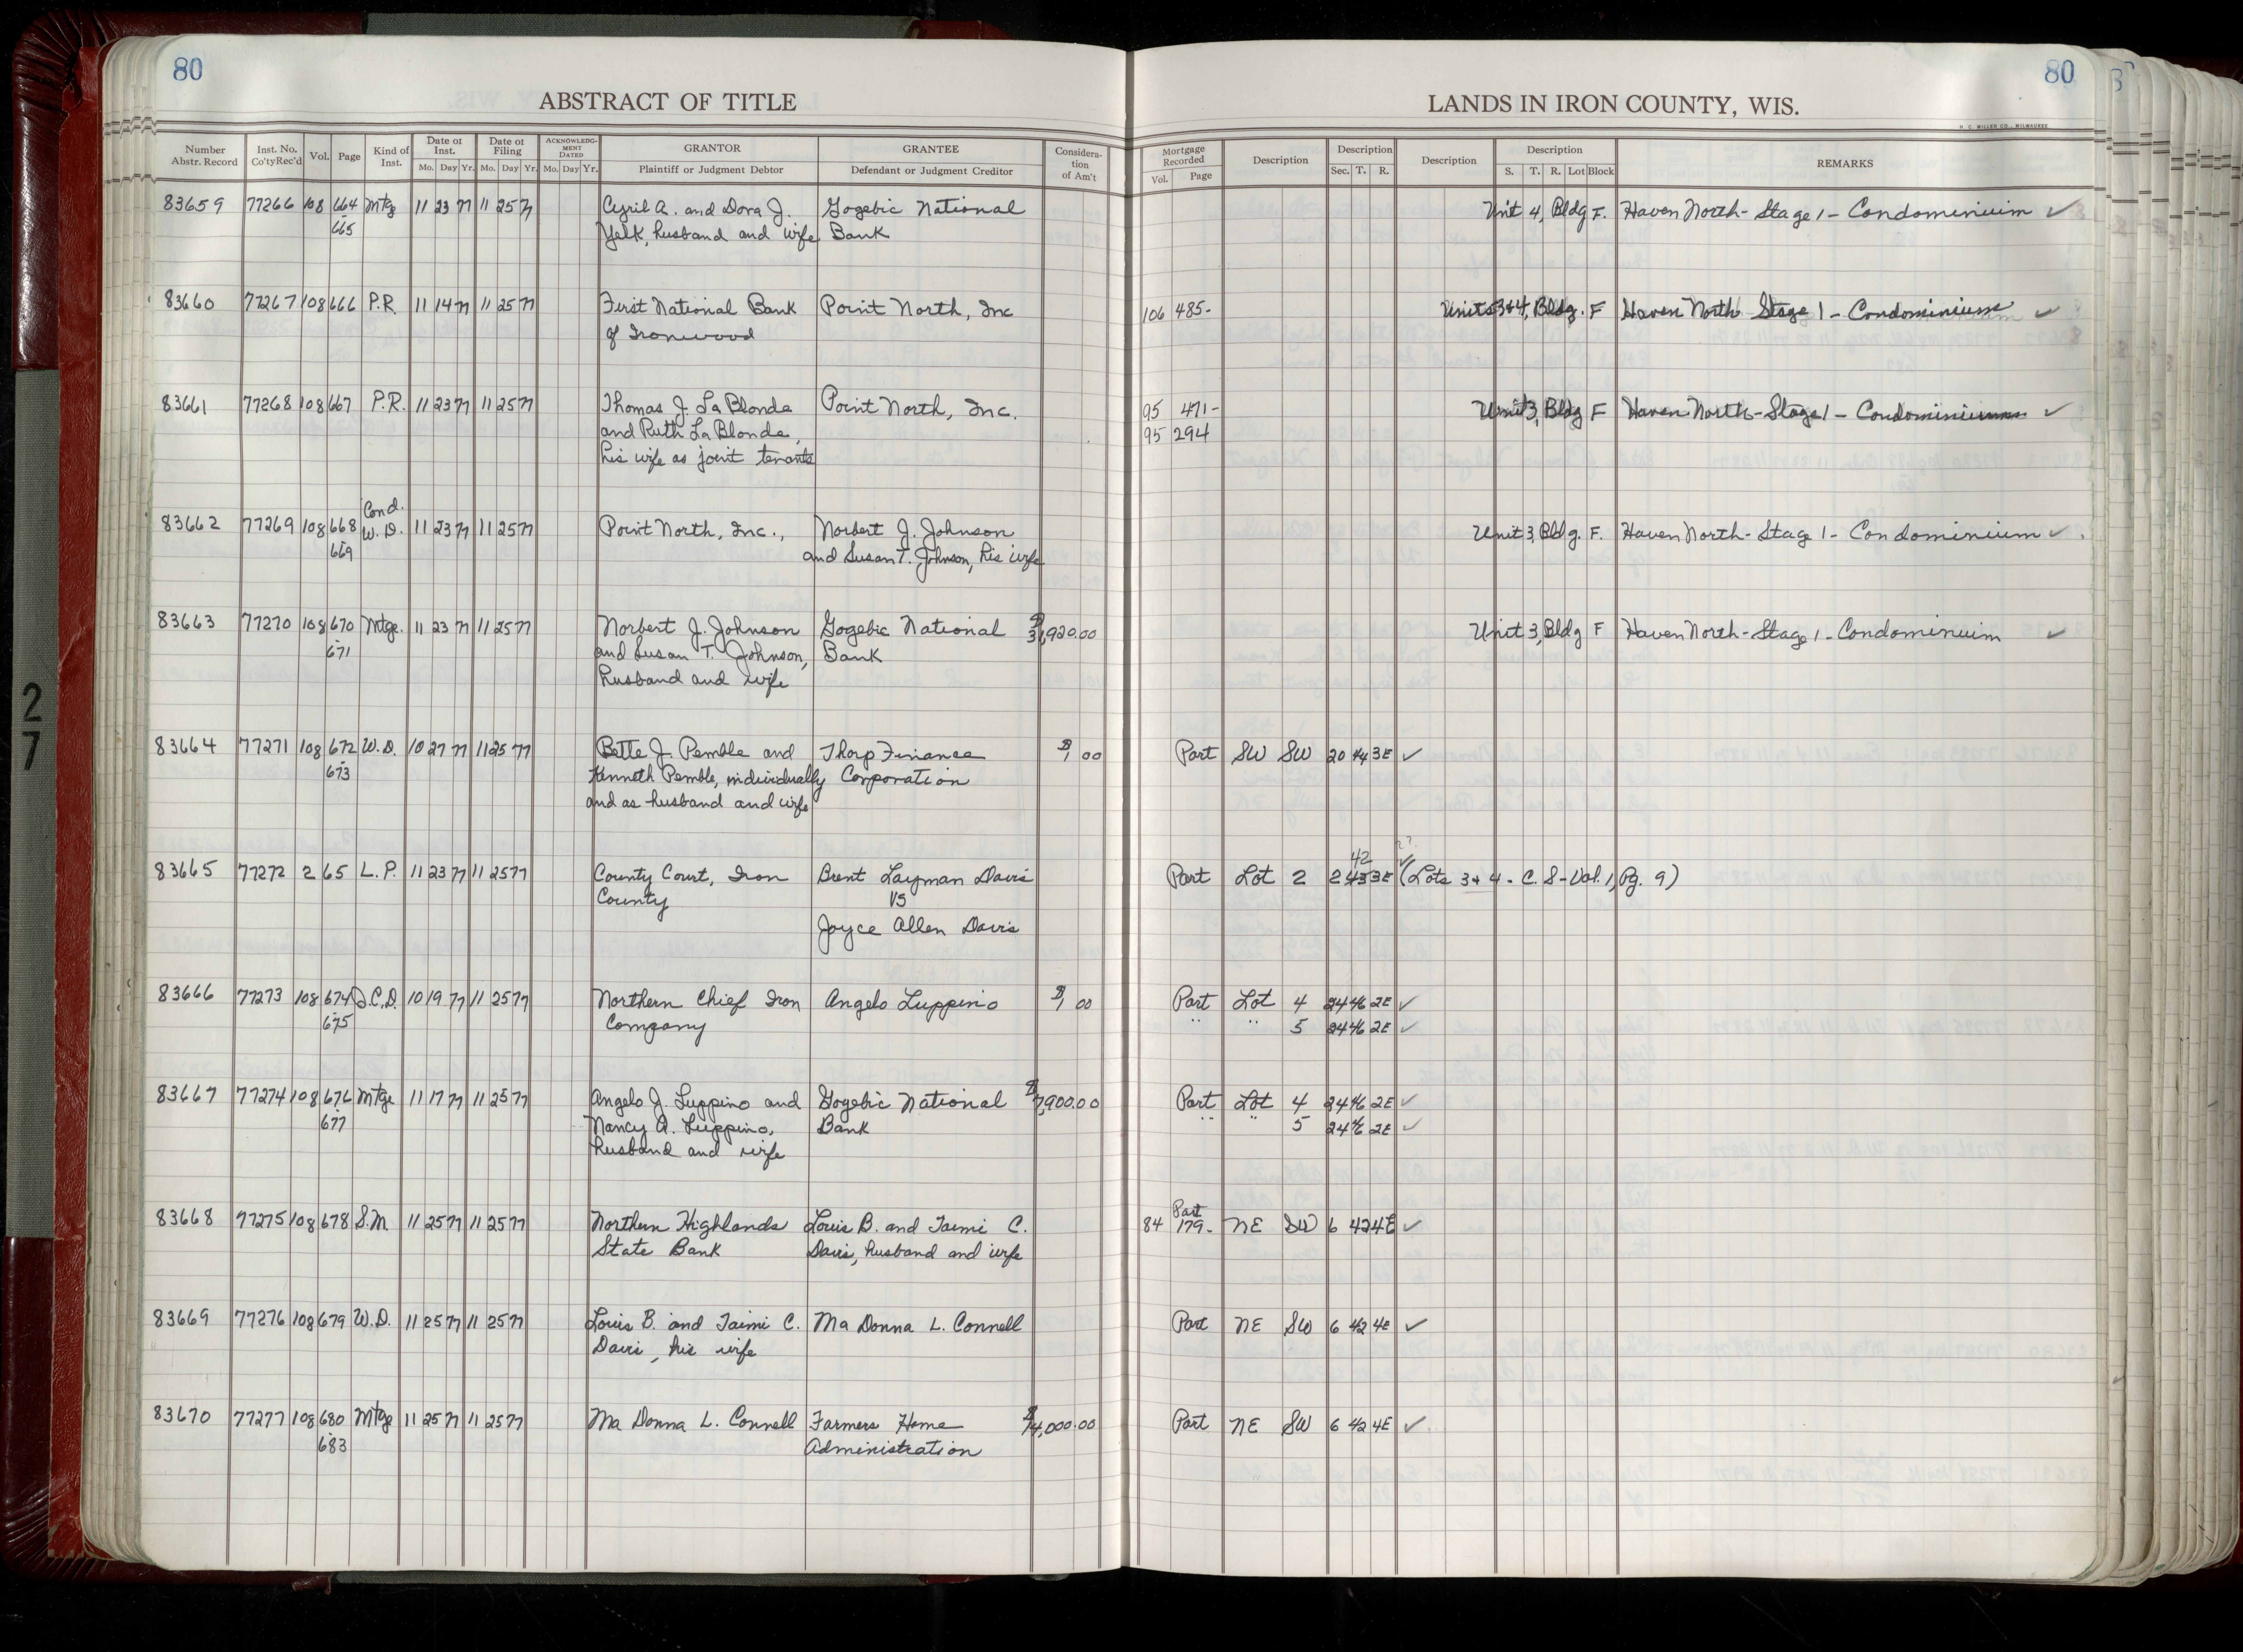 80
80
ABSTRACT OF TITLE
LANDS IN IRON COUNTY, WIS.
H. C. MILLER CO., MILWAUKEE
Number Abstr. Record | Inst. No. Co'ty Rec'd | Vol. | Page | Kind of Inst. | Date of Inst. Mo. Day Yr. | Date of Filing Mo. Day Yr. | ACKNOWLEDG-MENT DATED Mo. Day Yr. | GRANTOR Plaintiff or Judgment Debtor | GRANTEE Defendant or Judgment Creditor | Considera-tion of Am't | Mortgage Recorded Vol. Page | Description | Description Sec. T. R. | Description | Description S. T. R. Lot Block | REMARKS
83659 77266 108 664 Mtg 11 23 77 11 25 77 Cyril A. and Dora J. Gogebic National Unit 4, Bldg F. Haven North - Stage 1 - Condominium ✓
- 665 Yelk, husband and wife Bank
83660 77267 108 666 P.R. 11 14 77 11 25 77 First National Bank Point North, Inc 106 485- Units 3+4, Bldg. F Haven North Stage 1 - Condominium ✓
of Ironwood
83661 77268 108 667 P.R. 11 23 77 11 25 77 Thomas J. La Blonde Point North, Inc. 95 471- Unit 3, Bldg F Haven North - Stage 1 - Condominium ✓
and Ruth La Blonde, 95 294
his wife as joint tenants
Cond.
83662 77269 108 668 W. D. 11 23 77 11 25 77 Point North, Inc., Norbert J. Johnson Unit 3, Bldg. F. Haven North - Stage 1 - Condominium ✓
- 669 and Susan T. Johnson, his wife
83663 77270 108 670 Mtge. 11 23 77 11 25 77 Norbert J. Johnson Gogebic National $31,920.00 Unit 3, Bldg F Haven North - Stage 1 - Condominium ✓
- 671 and Susan T. Johnson, Bank
husband and wife
83664 77271 108 672 W. D. 10 27 77 11 25 77 Bette J. Pemble and Thorp Finance $1 00 Part SW SW 20 44 3E ✓
- 673 Kenneth Pemble, individually Corporation
and as husband and wife
42
83665 77272 2 65 L. P. 11 23 77 11 25 77 County Court, Iron Brent Layman Davis Part Lot 2 2 43 3E ✓ (Lots 3 + 4 - C. S - Vol. 1, Pg. 9)
County VS
Joyce Allen Davis
83666 77273 108 674 Q.C.D. 10 19 77 11 25 77 Northern Chief Iron Angelo Luppino $1 00 Part Lot 4 24 46 2E ✓
- 675 Company " " 5 24 46 2E ✓
83667 77274 108 676 Mtge 11 17 77 11 25 77 Angelo J. Luppino and Gogebic National $7,900.00 Part Lot 4 24 46 2E ✓
- 677 Nancy A. Luppino, Bank " " 5 24 46 2E ✓
husband and wife
Part
83668 77275 108 678 S.M. 11 25 77 11 25 77 Northern Highlands Louis B. and Taimi C. 84 179- NE SW 6 42 4E ✓
State Bank Davis, husband and wife
83669 77276 108 679 W. D. 11 25 77 11 25 77 Louis B. and Taimi C. Ma Donna L. Connell Part NE SW 6 42 4E ✓
Davis, his wife
83670 77277 108 680 Mtge 11 25 77 11 25 77 Ma Donna L. Connell Farmers Home $14,000.00 Part NE SW 6 42 4E ✓
- 683 Administration
27